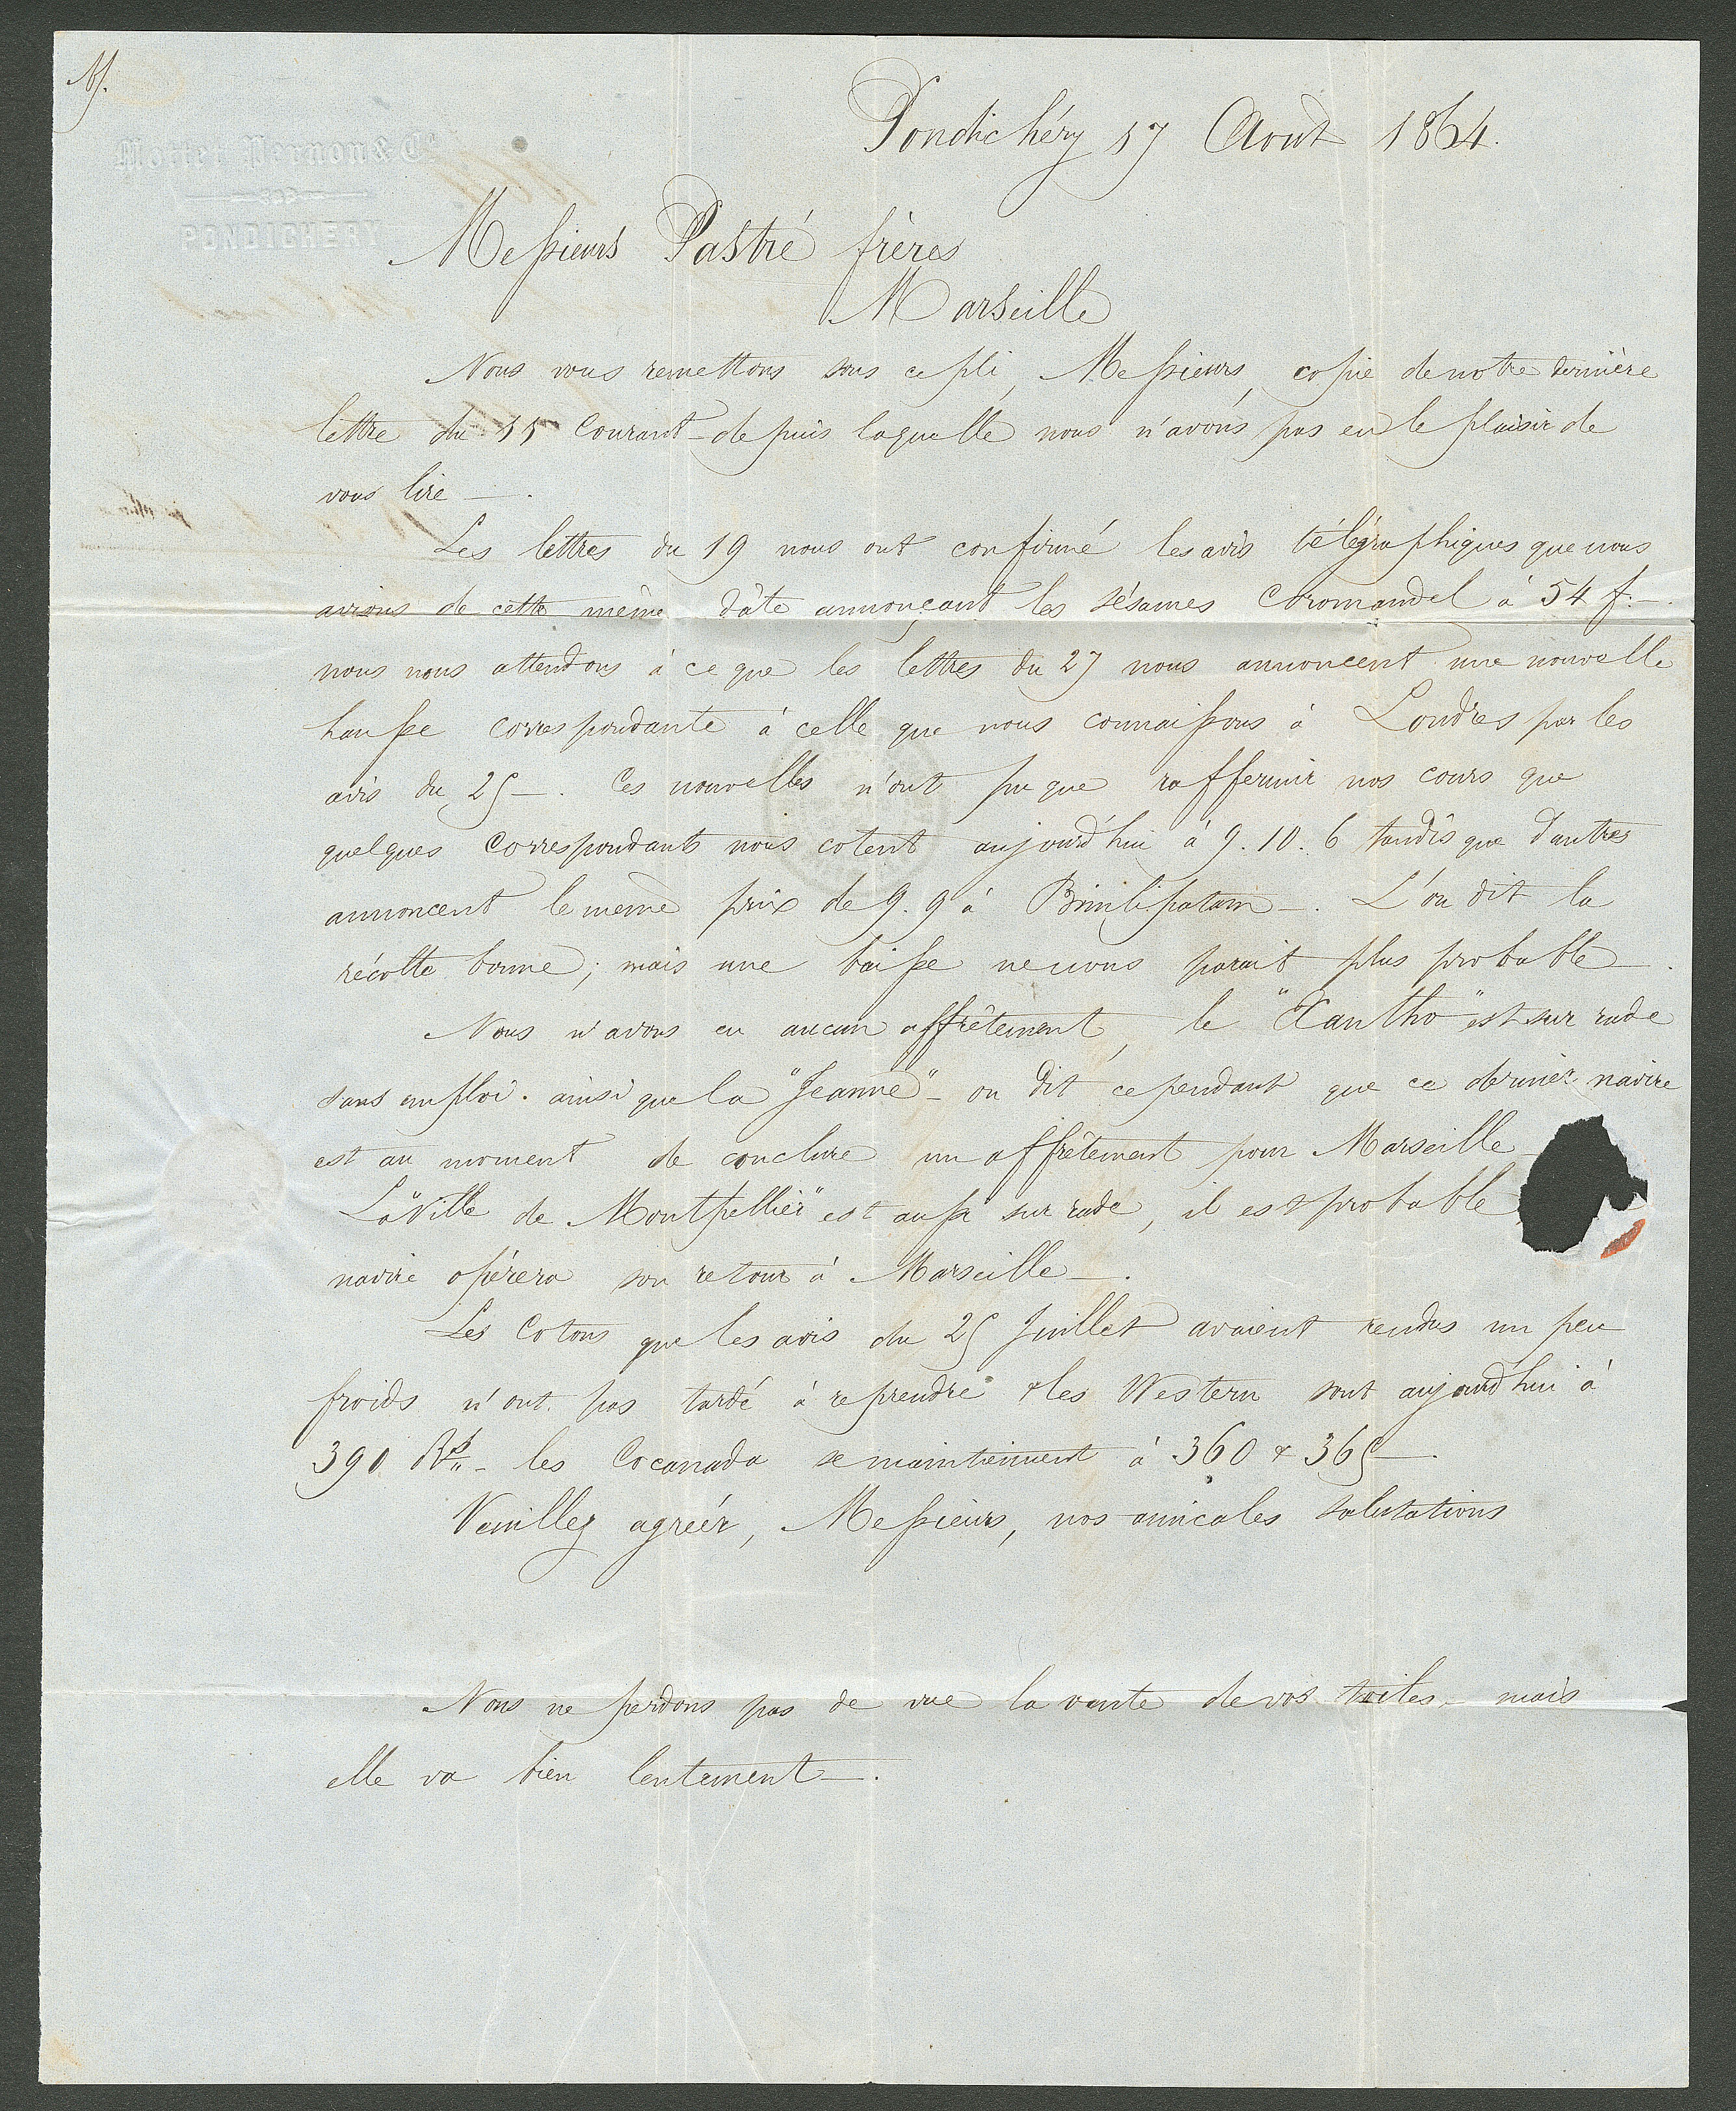 Mottet Vernon & Cie
PONDICHERY
Pondichéry 17 Aout 1864.
Messieurs Pastré frères
Marseille
Nous vous remettons sous ce pli, Messieurs, copie de notre dernière
lettre du 11 Courant - depuis laquelle nous n'avons pas eu le plaisir de
vous lire —.
Les lettres du 19 nous ont confirmé les avis télégraphiques que nous
avions de cette même date annonçant les sésames Coromandel à 54 f. —.
nous nous attendons à ce que les lettres du 27 nous annoncent une nouvelle
hausse correspondante à celle que nous connaissons à Londres par les
avis du 25 —. Ces nouvelles n'ont pu que raffermir nos cours que
quelques Correspondants nous cotent aujourd'hui à 9. 10. 6 tandis que d'autres
annoncent le même prix de 9. 9 à Bimlipatam —. L'on dit la
récolte bonne; mais une baisse ne nous parait plus probable —.
Nous n'avons eu aucun affrètement, le "Xantho" est sur rade
sans emploi. ainsi que la "Jeanne" - on dit cependant que ce dernier navire
est au moment de conclure un affrètement pour Marseille —
La "Ville de Montpellier" est aussi sur rade, il est probable
navire opérera son retour à Marseille —.
Les Cotons que les avis du 25 Juillet avaient rendus un peu
froids n'ont pas tardé à reprendre & les Western sont aujourd'hui à
390 Rs - les Cocanada se maintiennent à 360 & 365 —.
Veuillez agréér, Messieurs, nos amicales salutations
Nous ne perdons pas de vue la vente de vos toiles - mais
elle va bien lentement —.